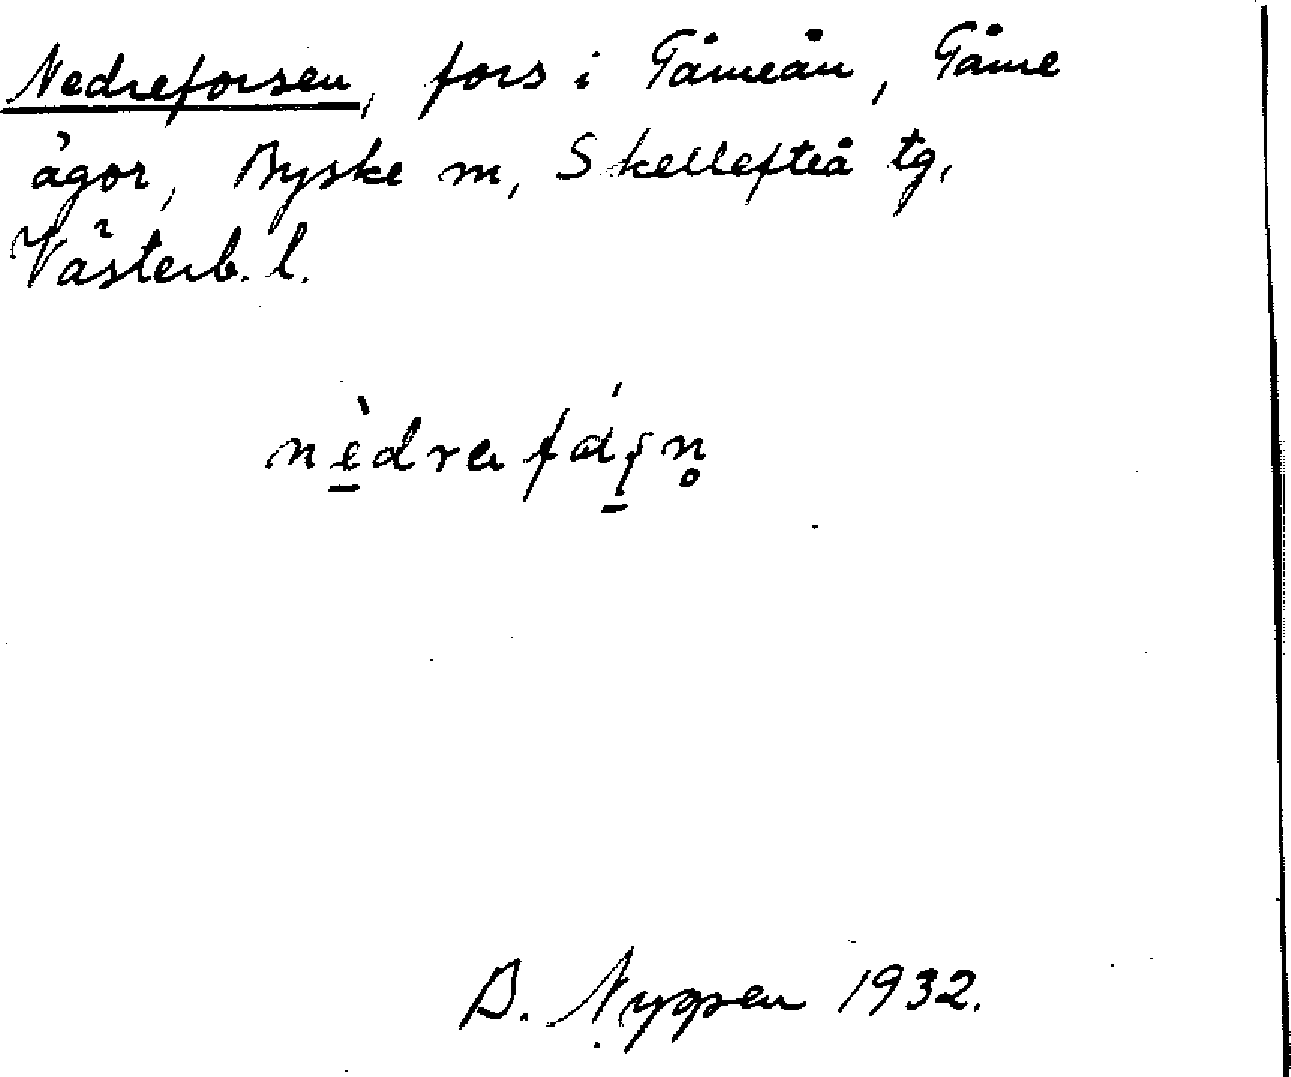 Nedreforsen, fors i Tåmeån, Tåme
ägor, Byske m, Skellefteå tg,
Västerb. l.
nè̱drafáʂ̱n̥
B. Nygren 1932.